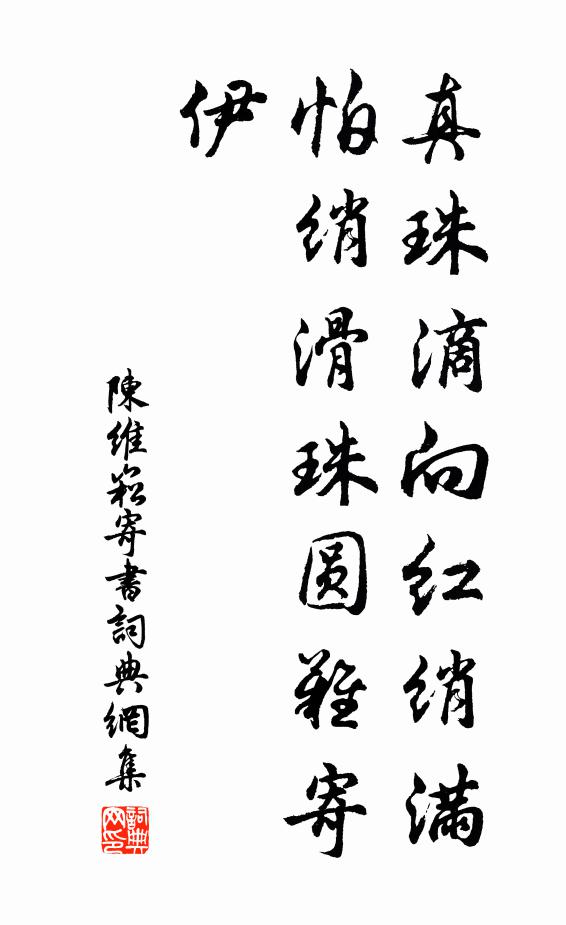 真珠滴向红绡满
怕绡滑珠圆難寄
伊
陳維崧寄書詞典網集
詞典网印